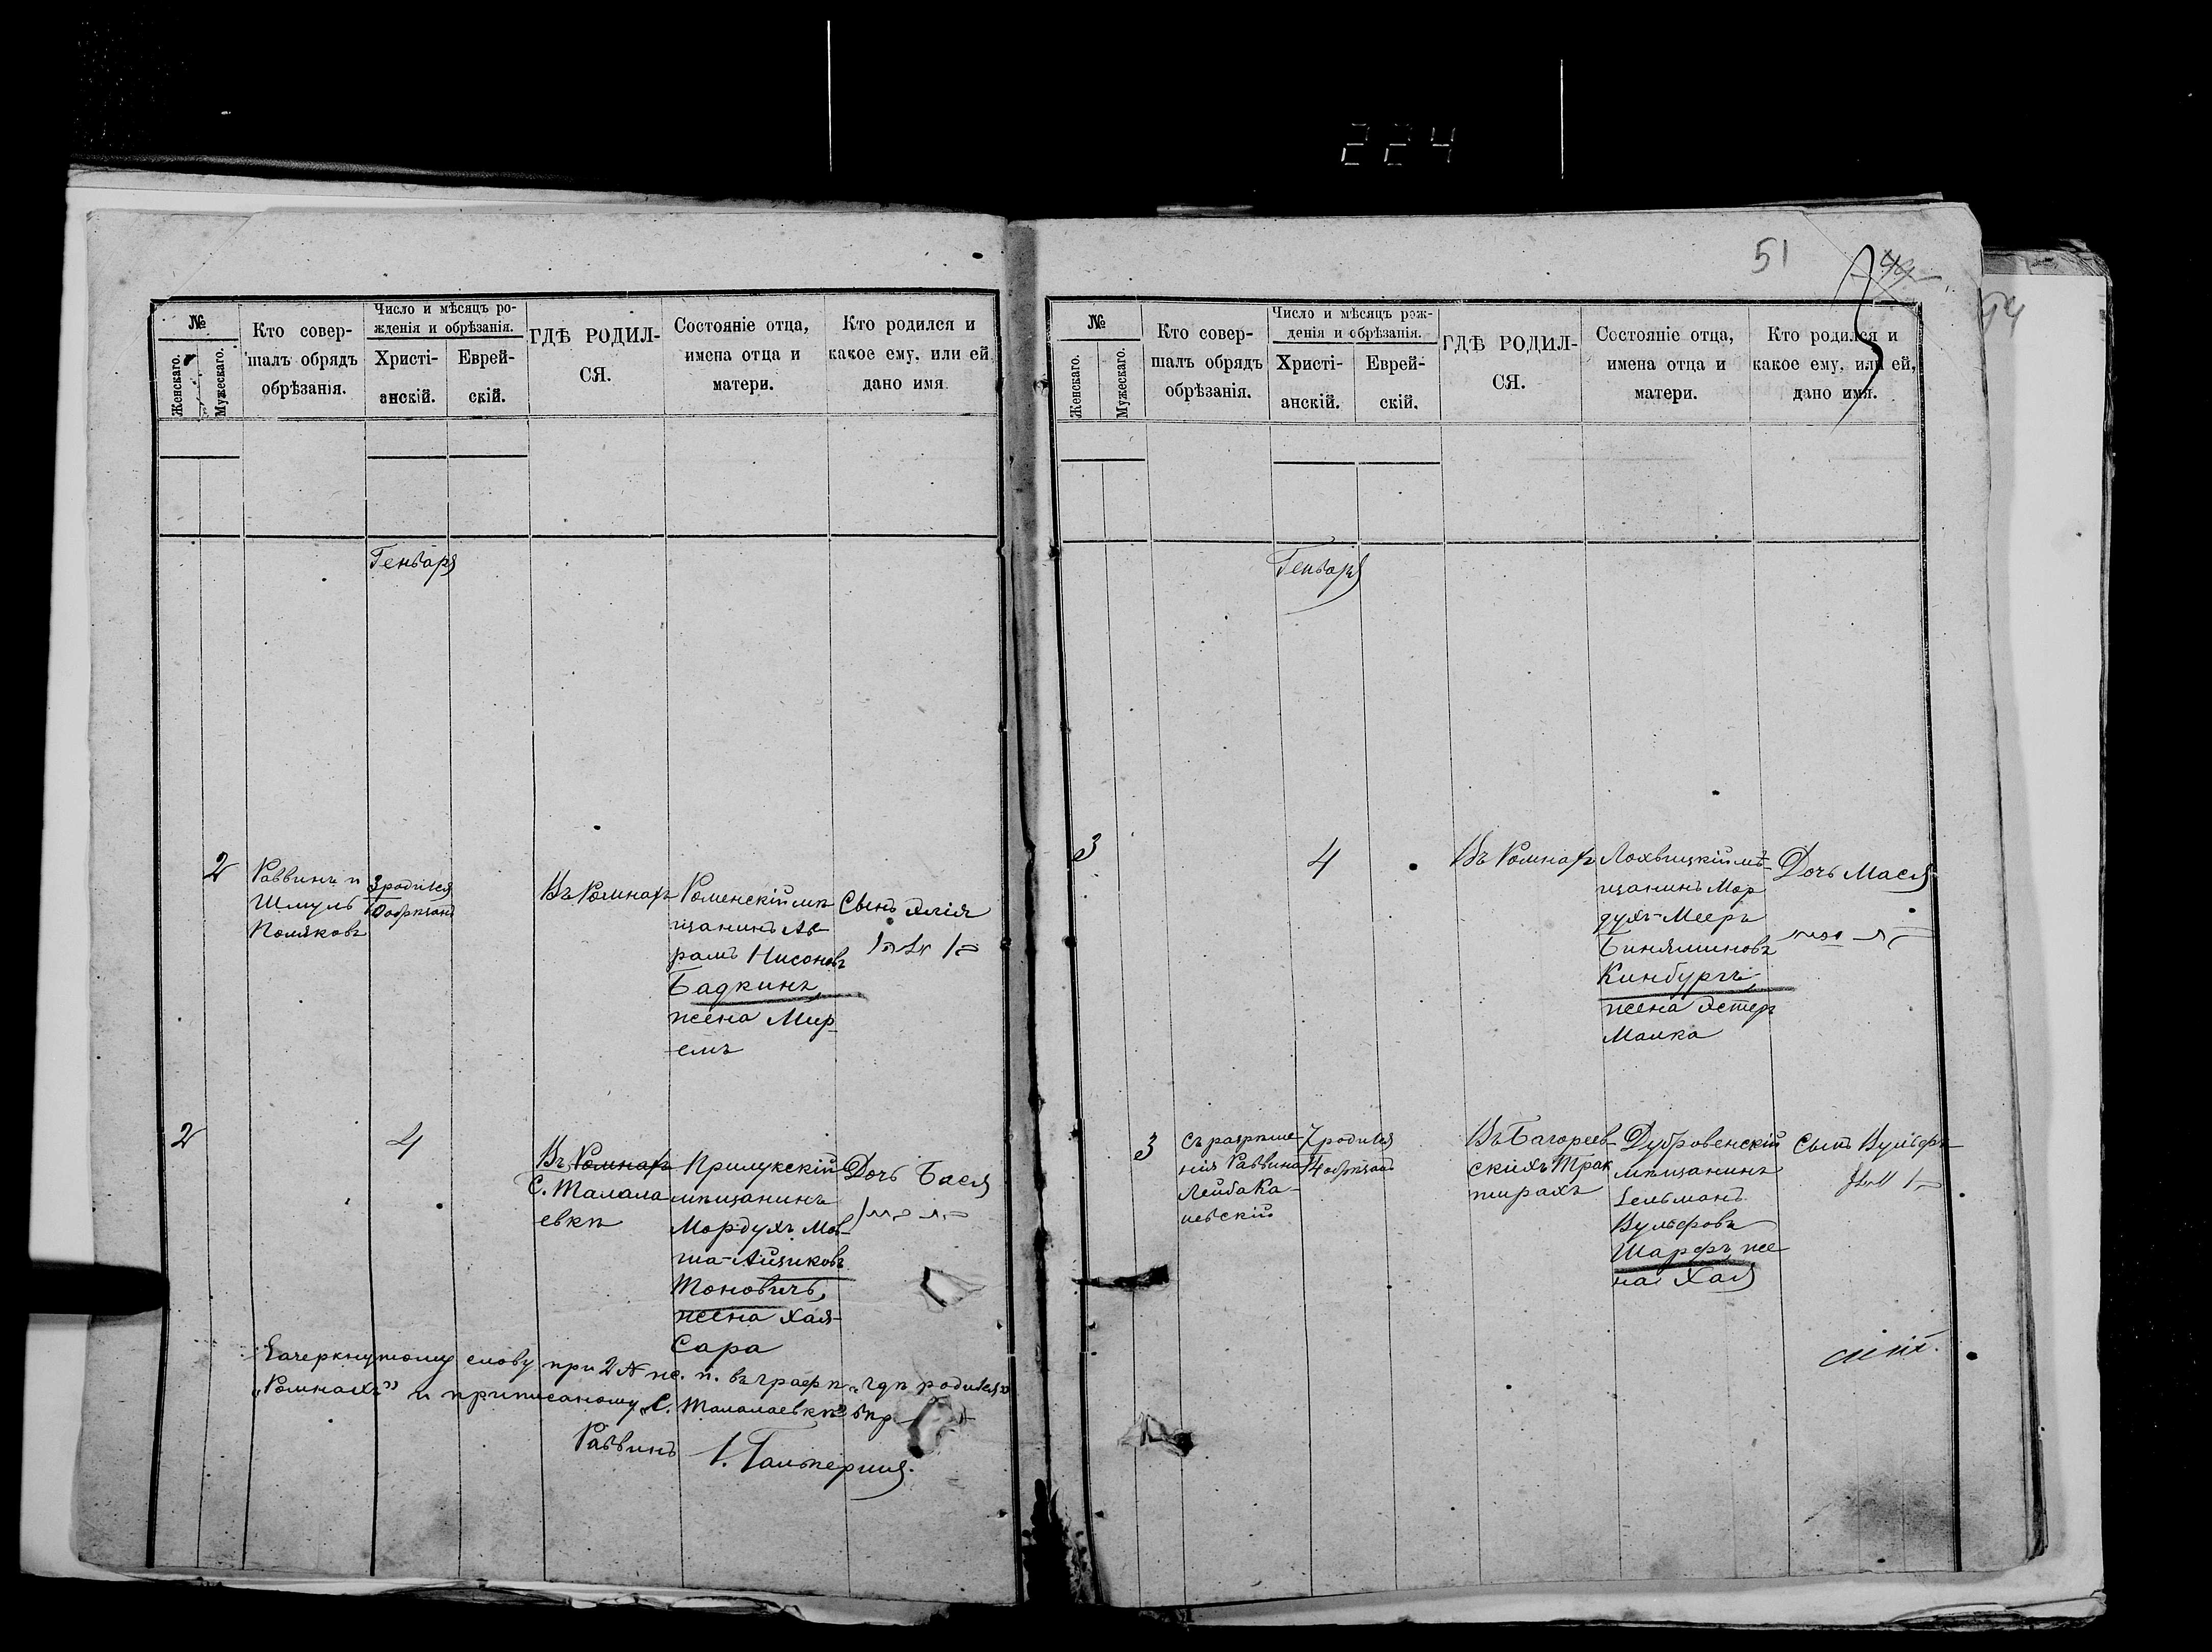 224
№
Женскаго.
Мужескаго.
Кто совер-
шалъ обрядъ
обрѣзанія.
Число и мѣсяцъ ро-
жденія и обрѣзанія.
Христі-
анскій.
Еврей-
скій.
ГДѢ РОДИЛ-
СЯ.
Состояніе отца,
имена отца и
матери.
Кто родился и
какое ему, или ей
дано имя.
Генваря
2
Раввинъ и
Шмуль
Поляковъ
3 родился
10 обрѣзанъ
Въ Ромнахъ
Роменскій мѣ
щанинъ Ав
рамъ Нисоновъ
Бадкинъ,
жена Мир-
емъ
Сынъ Элія
2
4
Въ Ромнахъ
С. Талала
евкѣ
Прилукскій
мѣщанинъ
Мордухъ Мов-
ша-Айзиковъ
Тоновичъ,
жена Хая-
Сара
Дочь Бася
Зачеркнутому слову при 2 № же. п. въ графѣ „гдѣ родился"
„Ромнахъ" и приписаному „С. Талалаевкѣ"
Раввинъ
51
№
Женскаго.
Мужескаго.
Кто совер-
шалъ обрядъ
обрѣзанія.
Число и мѣсяцъ рож-
денія и обрѣзанія.
Христі-
анскій.
Еврей-
скій.
ГДѢ РОДИЛ-
СЯ.
Состояніе отца,
имена отца и
матери.
Кто родился и
какое ему, или ей,
дано имя.
Генваря
3
4
Въ Ромнахъ
Лохвицкій мѣ-
щанинъ Мор
духъ-Мееръ
Биняминовъ
Кинбургъ,
жена Эстеръ
Малка
Дочь Мася
3
Съ разрѣше-
нія Раввина
Лейба Ка-
невскій
7 родился
14 обрѣзанъ
Дубровенскій
мѣщанинъ
Зельманъ
Вульфовъ
Шарфъ, же
на Хая
Сынъ Вульфъ